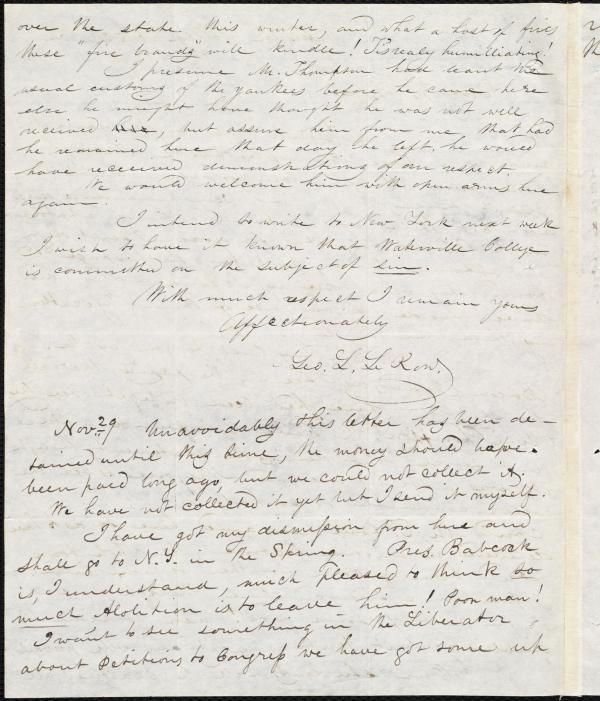 over the state this winter, and what a host of fires
these "fire brands" will kindle! Tis realy humiliating!
I presume Mr. Thompson had learnt the
usual customs of the yankees before he came here
else he might have thought he was not well
received, but assure him from me, that had
he remained here that day he left, he would
have received demonstrations of our respect.
We would welcome him with open arms here
again.
I intend to write to New York next week
I wish to have it known that Waterville College
is committed on the subject of sin.
With much respect I remain yours
Affectionately
Geo. L. Le Row.
Nov. 29 Unavoidably this letter has been de-
tained until this time, the money should have
been paid long ago, but we could not collect it.
We have not collected it yet but I send it myself.
I have got my dismission from here and
shall go to N.Y. in the Spring. Pres. Babcock
is, I understand, much pleased to think so
much Abolition is to leave him! Poor man!
I want to see something in the Liberator
about Petitions to Congress we have got some up